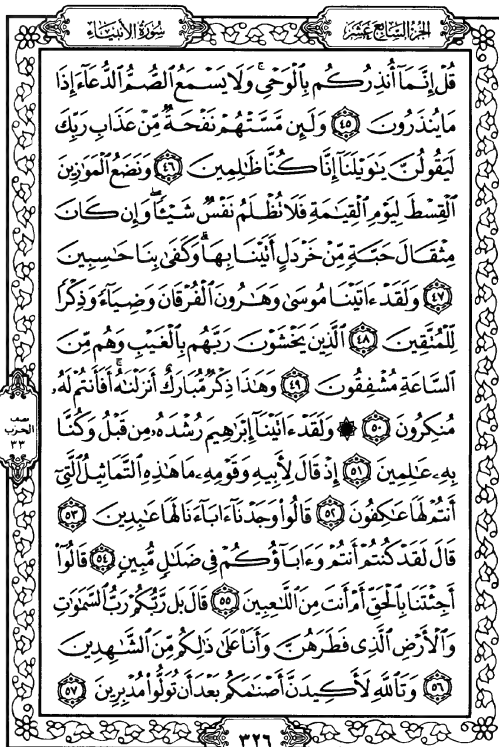 سُورَةُ الْأَنْبِيَاءِ
الجُزْءُ السَّابِعُ عَشَرَ
قُلْ إِنَّمَآ أُنذِرُكُم بِٱلْوَحْىِ ۚ وَلَا يَسْمَعُ ٱلصُّمُّ ٱلدُّعَآءَ إِذَا
مَا يُنذَرُونَ ٤٥ وَلَئِن مَّسَّتْهُمْ نَفْحَةٌ مِّنْ عَذَابِ رَبِّكَ
لَيَقُولُنَّ يَٰوَيْلَنَآ إِنَّا كُنَّا ظَٰلِمِينَ ٤٦ وَنَضَعُ ٱلْمَوَٰزِينَ
ٱلْقِسْطَ لِيَوْمِ ٱلْقِيَٰمَةِ فَلَا تُظْلَمُ نَفْسٌ شَيْـًٔا ۖ وَإِن كَانَ
مِثْقَالَ حَبَّةٍ مِّنْ خَرْدَلٍ أَتَيْنَا بِهَا ۗ وَكَفَىٰ بِنَا حَٰسِبِينَ
٤٧ وَلَقَدْ ءَاتَيْنَا مُوسَىٰ وَهَٰرُونَ ٱلْفُرْقَانَ وَضِيَآءً وَذِكْرًا
لِّلْمُتَّقِينَ ٤٨ ٱلَّذِينَ يَخْشَوْنَ رَبَّهُم بِٱلْغَيْبِ وَهُم مِّنَ
ٱلسَّاعَةِ مُشْفِقُونَ ٤٩ وَهَٰذَا ذِكْرٌ مُّبَارَكٌ أَنزَلْنَٰهُ ۚ أَفَأَنتُمْ لَهُۥ
مُنكِرُونَ ٥٠ ۞ وَلَقَدْ ءَاتَيْنَآ إِبْرَٰهِيمَ رُشْدَهُۥ مِن قَبْلُ وَكُنَّا
بِهِۦ عَٰلِمِينَ ٥١ إِذْ قَالَ لِأَبِيهِ وَقَوْمِهِۦ مَا هَٰذِهِ ٱلتَّمَاثِيلُ ٱلَّتِىٓ
أَنتُمْ لَهَا عَٰكِفُونَ ٥٢ قَالُوا۟ وَجَدْنَآ ءَابَآءَنَا لَهَا عَٰبِدِينَ ٥٣
قَالَ لَقَدْ كُنتُمْ أَنتُمْ وَءَابَآؤُكُمْ فِى ضَلَٰلٍ مُّبِينٍ ٥٤ قَالُوٓا۟
أَجِئْتَنَا بِٱلْحَقِّ أَمْ أَنتَ مِنَ ٱللَّٰعِبِينَ ٥٥ قَالَ بَل رَّبُّكُمْ رَبُّ ٱلسَّمَٰوَٰتِ
وَٱلْأَرْضِ ٱلَّذِى فَطَرَهُنَّ وَأَنَا۠ عَلَىٰ ذَٰلِكُم مِّنَ ٱلشَّٰهِدِينَ
٥٦ وَتَٱللَّهِ لَأَكِيدَنَّ أَصْنَٰمَكُم بَعْدَ أَن تُوَلُّوا۟ مُدْبِرِينَ ٥٧
نصف
الحزب
٣٣
٣٢٦